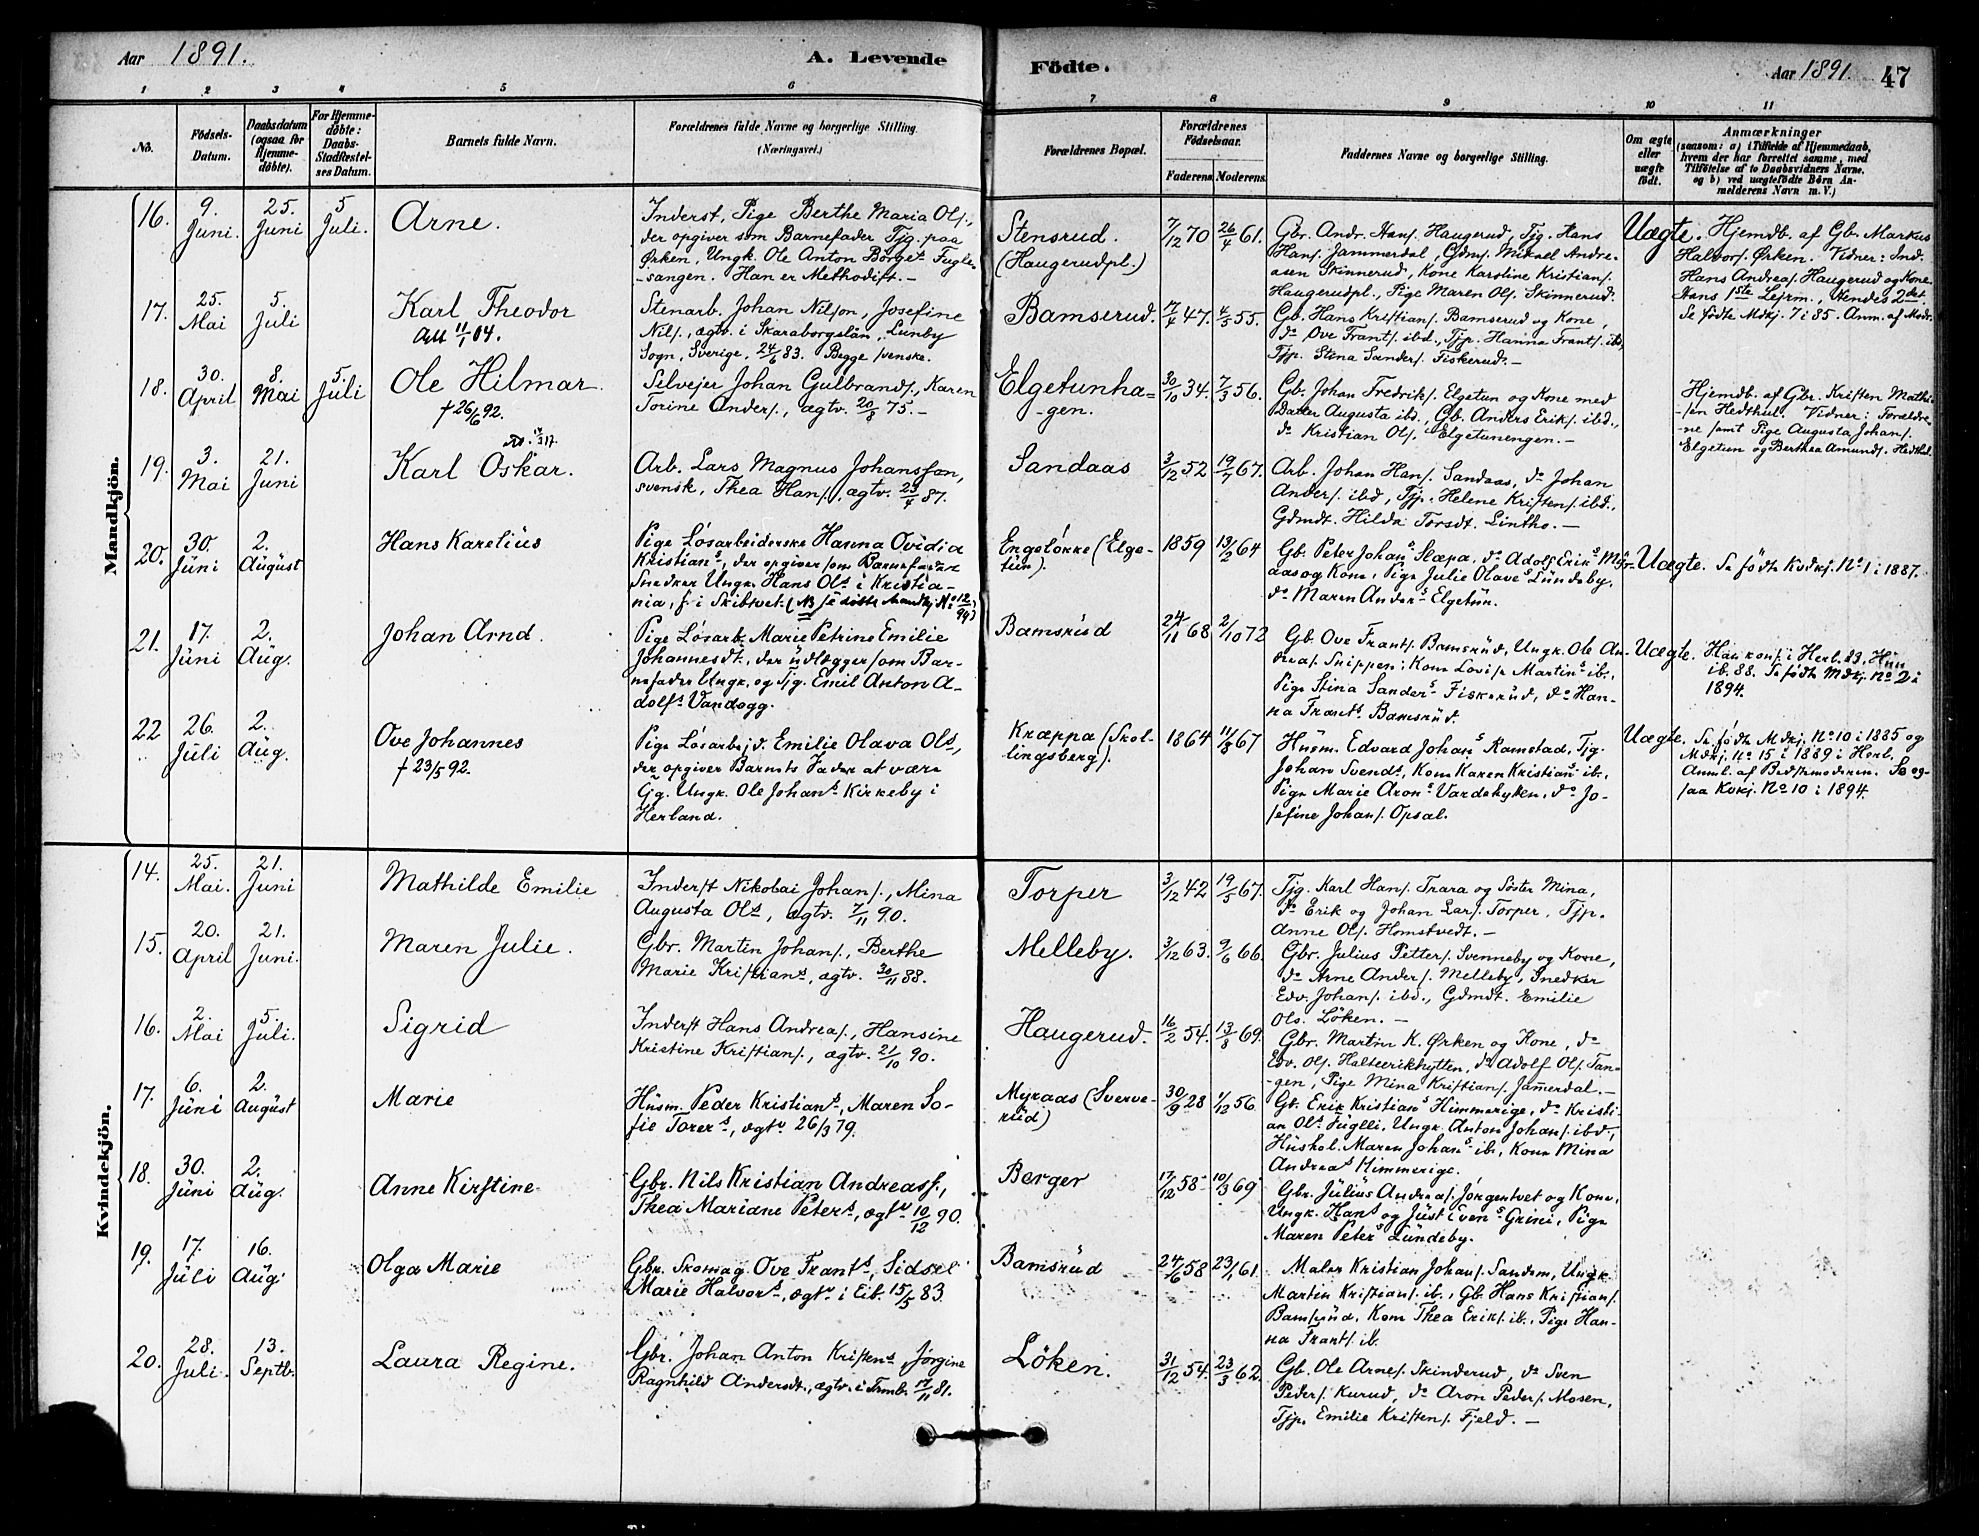 Aar 1891.
A. Levende
Födte.
Aar 1891.
47
1 2 3 4 5 6 7 8 9 10 11
No.
Födsels-
Datum.
Daabsdatum
(ogsaa for
Hjemme-
döbte).
For Hjemme-
döbte:
Daabs-
Stadfæstel-
ses Datum.
Barnets fulde Navn.
Forældrenes fulde Navne og borgerlige Stilling
(Næringsvei.)
Forældrenes Bopæl.
Forældrenes
Födselsaar.
Faderens. Moderens.
Faddernes Navne og borgerlige Stilling.
Om ægte
eller
uægte
födt.
Anmærkninger
(saasom: a) i Tilfælde af Hjemmedaab,
hvem der har forrettet samme, med
Tilföielse af to Daabsvidners Navne,
og b) ved uægtefödte Börn An-
melderens Navn m. V.)
Mandkjön.
16.
9.
Juni.
25.
Juni
5
Juli.
Arne.
Inderst, Pige Berthe Maria Ols.,
der opgiver som Barnefader Tjg. paa
Ørken, Ungk. Ole Anton Borget Fugle-
-sangen. Han er Methodist. -
Stensrud.
(Haugerudpl.)
7/12 70
26/4 61.
Gbr. Andr. Hans. Haugerud, Tjg. Hans
Hans. Jammerdal, Gdms. Mikael Andre-
asen Skinnerud, Kone Karoline Kristians.
Haugerudpl., Pige Maren Ols. Skinnerud.
Uægte.
Hjemdb. af Gb. Markus
Halvors. Ørken. Vidner: Ind.
Hans Andreas. Haugerud og Kone
Hans 1ste Lejrm., Hendes 2det
Se fødte Mdkj. 7 i 85. Anm. af Modr.
17.
25.
Mai
5.
Juli
Karl Theodor
Att 11/1 04.
Stenarb. Johan Nilson, Josefine
Nils., ægtv. i Skaraborgslän, Lunby
Sogn, Sverige, 24/6 83. Begge svenske.
Bamserud.
17/4 47.
4/5 55.
Gb. Hans Kristians. Bamserud og Kone,
do Ove Frants. ibd., Tjp. Hanna Frants. ibd,
Tjp. Stina Sanders. Fiskerud. -
18.
30.
April
8.
Mai
5.
Juli
Ole Hilmar
† 26/6 92.
Selvejer Johan Gulbrands., Karen
Torine Anders., ægtv. 20/8 75. -
Elgetunha-
-gen.
30/10 34.
7/3 56.
Gb. Johan Fredriks. Elgetun og Kone med
Datter Augusta ibd., Gb. Anders Eriks. ibd.,
do Kristian Ols. Elgetunengen. -
Hjemdb. af Gbr. Kristen Mathi-
-sen Hedthul. Vidner: Forældre-
-ne samt Pige Augusta Johans.
Elgetun og Berthea Amunds. Hedthul.
19.
3.
Mai
21.
Juni
Karl Oskar.
Arb. Lars Magnus Johansson,
svensk, Thea Hans., ægtv. 23/4 87.
Sandaas
3/12 52
19/7 67.
Arb. Johan Hans. Sandaas, do Johan
Anders. ibd, Tjp. Helene Kristens. ibd.,
Gdmdt. Hilda Torsdt. Lintho. -
20.
30.
Juni
2.
August
Hans Karelius
Pige Løsarbeiderske Hanna Ovidia
Kristians, der opgiver som Barnefader
Snedker Ungk. Hans Ols i Kristia-
nia, f. i Skibtvet.
Engeløkke (Elge-
tun).
1859
13/2 64
Gb. Peter Johans Slæpa, do Adolf Eriks Myr-
aas og Kone, Pige Julie Olaves Lundeby,
do Maren Anders Elgetun.
Uægte.
Se fødte Kvdkj. No 1 i 1887.
21.
17.
Juni
2.
Aug.
Johan Arnd.
Pige Løsarb. Marie Petrine Emilie
Johannesdt., der udlægger som Bar-
nefader Ungk. og Tjg. Emil Anton A-
dolfs Vandogg.
Bamsrud
24/11 68
2/10 72
Gb. Ove Frants. Bamsrud, Ungk. Ole An-
dreas. Snippen, Kone Lovise Martins ib.,
Pige Stina Sanders Fiskerud, do Han-
na Frants. Bamsrud.
Uægte.
Han konf. i Herl. 83. Hun
ib. 88. Se fødte Mdkj. No 2 i
1894.
22
26.
Juli
2.
Aug.
Ove Johannes
† 23/5 92.
Pige Løsarbejd. Emilie Olava Ols,
der opgiver Barnets Fader at være
Gg. Ungk. Ole Johans Kirkeby i
Herland.
Kræppa (Skol-
lingsberg).
1864
11/8 67
Husm. Edvard Johans Ramstad, Tjg.
Johan Svends, Kone Karen Kristians ib.,
Pige Marie Arons Vardehytten, do Jo-
sefine Johans. Opsal.
Uægte.
Se fødte Mdkj. No 10 i 1885 og
Mdkj. No 15 i 1889 i Herl.
Anml. af Bedstemoderen. Se og-
saa Kvkj. No 10 i 1894.
Kvindekjön.
14.
25.
Mai.
21.
Juni
Mathilde Emilie
Inderst Nikolai Johans., Mina
Augusta Ols, ægtv. 7/11 90.
Torper
3/12 42
19/5 67.
Tjg. Karl Hans. Trara og Søster Mina,
do Erik og Johan Lars. Torper, Tjp.
Anne Ols. Homstvedt. -
15.
20.
April
21.
Juni.
Maren Julie.
Gbr. Martin Johans., Berthe
Marie Kristians, ægtv. 30/11 88.
Melleby.
3/12 63.
9/6 66.
Gbr. Julius Petters. Svenneby og Kone,
do Arne Anders. Melleby, Snedker
Edv. Johans. ibd., Gdmdt. Emilie
Ols. Löken. -
16.
2.
Mai
5.
Juli.
Sigrid
Inderst Hans Andreas., Hansine
Kristine Kristians., ægtv. 21/10 90.
Haugerud.
16/2 54.
13/8 69.
Gbr. Martin K. Ørken og Kone, do
Edv. Ols. Halteerikhytten, do Adolf Ols. Tan-
-gen, Pige Mina Kristians. Jamerdal. -
17.
6.
Juni
2.
August
Marie
Husm. Peder Kristians, Maren So-
fie Torers, ægtv 26/3 79.
Myraas (Sverve-
rud)
30/9 28
1/12 56
Gb. Erik Kristians Himmerige, do Kristi-
an Ols Fuglli, Ungk. Anton Johans. ibd.,
Hushol. Maren Johans ib., Kone Mina
Andreas Himmerige.
18.
30.
Juni
2.
Aug.
Anne Kirstine
Gbr. Nils Kristian Andreass.,
Thea Mariane Peters, ægtv 10/12 90.
Berger
17/12 58
10/3 69
Gbr. Julius Andreas. Jørgentvet og Kone,
Ungk. Hans og Just Evens Grini, Pige
Maren Peters Lundeby.
19.
17.
Juli
16.
Aug.
Olga Marie
Gbr. Skomag. Ove Frants, Sidsel
Marie Halvors, ægtv i Eib. 15/5 83.
Bamsrud
24/6 58
23/1 61.
Maler Kristian Johans. Sandem, Ungk.
Martin Kristians. ib., Gb. Hans Kristians.
Bamsrud, Kone Thea Eriks. ib., Pige Han-
na Frants. ib.
20.
28.
Juli.
13.
Septb.
Laura Regine.
Gbr. Johan Anton Kristens, Jørgine
Ragnhild Andersdt., ægtv. i Trmb. 17/11 81.
Löken.
31/12 54.
23/3 62.
Gb. Ole Arnes. Skinderud, do Sven
Peders. Kurud, do Aron Peders. Mosen,
Tjp. Emilie Kristens. Fjeld. -